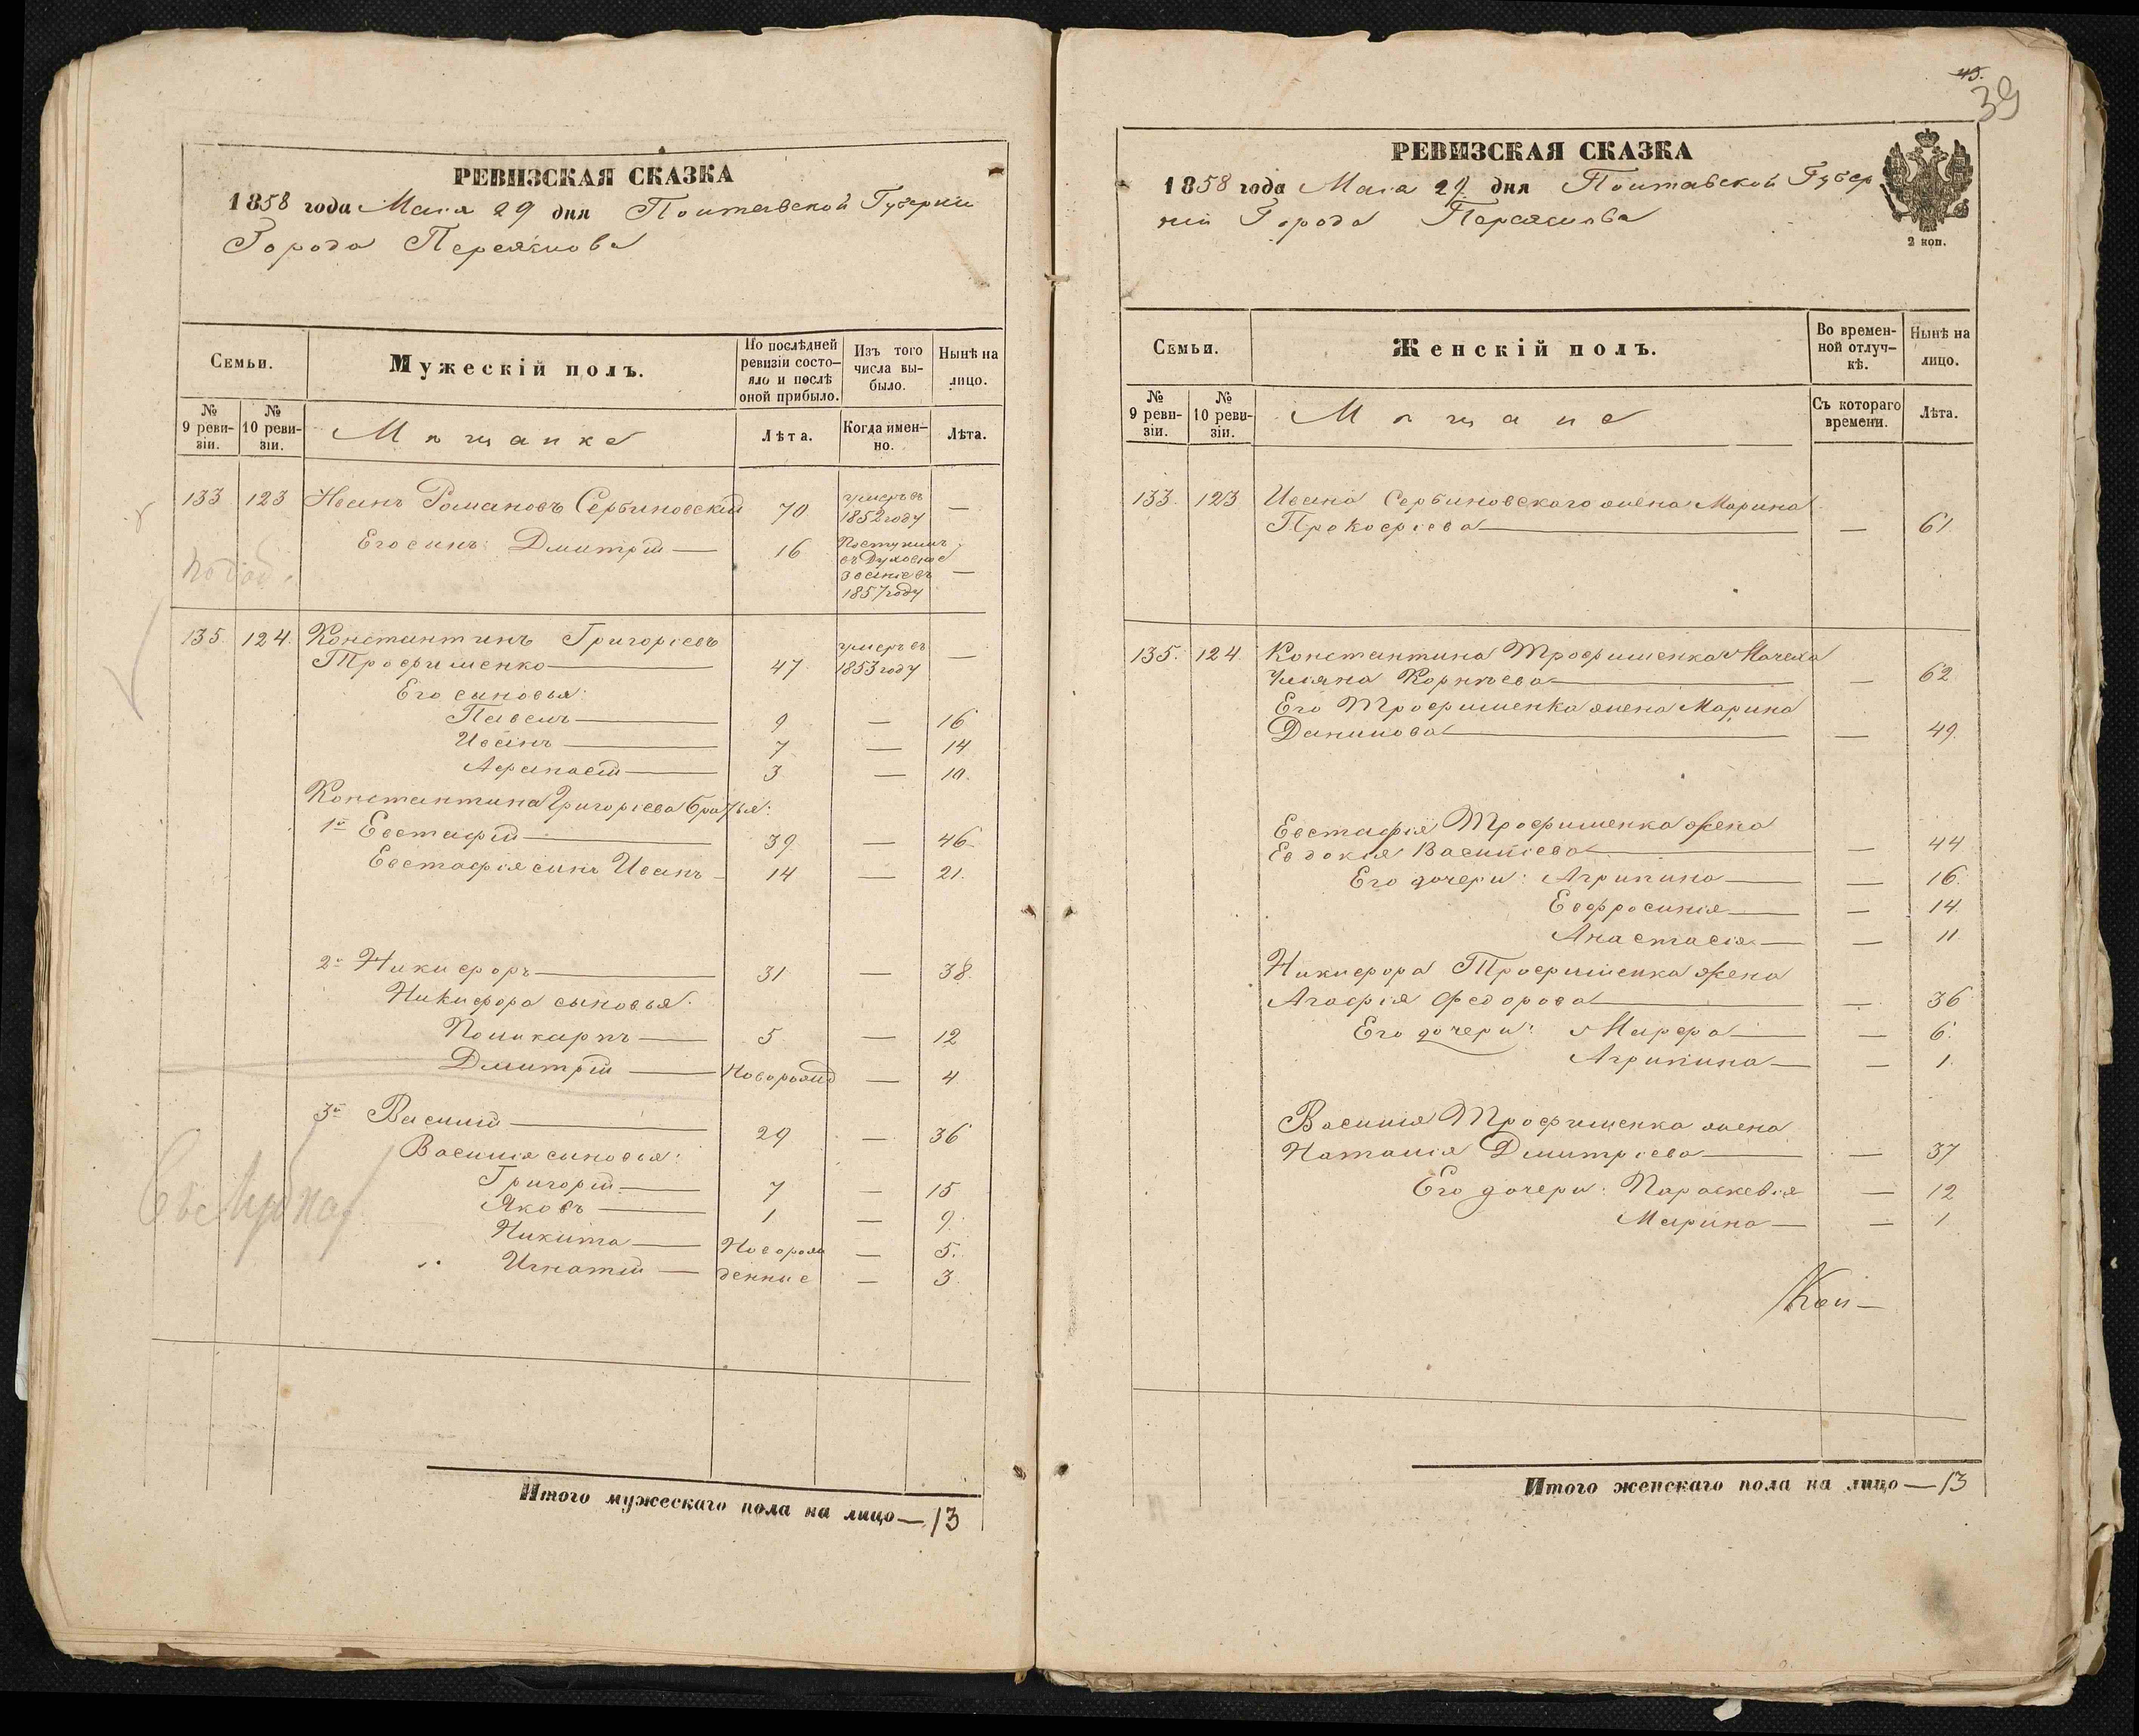 РЕВИЗСКАЯ СКАЗКА
1858 года Мая 29 дня Полтавской Губерніи
Города Переяслова
Семьи.
Мужескій полъ.
По послѣдней ревизіи состо-
яло и послѣ оной прибыло.
Изъ того числа вы-
было.
Нынѣ на лицо.
№ 9 реви-
зіи.
№ 10 реви-
зіи.
Мѣщанѣ
Лѣта.
Когда имен-
но.
Лѣта.
133 123 Иванъ Романовъ Сербиновскій 70 умеръ въ 1852 году —
Его сынъ: Дмитрій — 16 Поступилъ въ Духовное званіе въ 1857 году —
135 124. Константинъ Григоріевъ
Трофименко — 47 умеръ въ 1853 году —
Его сыновья:
Павелъ — 9 — 16
Иванъ — 7 — 14
Афанасій — 3 — 10.
Константина Григоріева братья:
1й Евстафій — 39 — 46
Евстафія сынъ Иванъ — 14 — 21.
2й Никифоръ — 31 — 38.
Никифора сыновья:
Поликарпъ — 5 — 12
Дмитрій — Новорожд — 4
3й Василій — 29 — 36
Василія сыновья:
Григорій — 7 — 15
Яковъ — 1 — 9.
Никита — Новорож — 5.
Игнатій — денные — 3.
Итого мужескаго пола на лицо — 13
45.
39
РЕВИЗСКАЯ СКАЗКА
1858 года Маія 29 дня Полтавской Губер
ніи Города Переяслова
2 коп.
Семьи.
Женскій полъ.
Во времен-
ной отлуч-
кѣ.
Нынѣ на лицо.
№ 9 реви-
зіи.
№ 10 реви-
зіи.
Мѣщане
Съ котораго времени.
Лѣта.
133. 123 Ивана Сербиновского жена Марина
Прокофіева — — 61
135. 124. Константина Трофименка Мачеха
Уліяна Корнѣева — — 62
Его Трофименка жена Марина
Данилова — — 49.
Евстафія Трофименка жена
Евдокія Василіева — — 44
Его дочери: Агрипина — — 16.
Евфросинія — — 14
Анастасія — — 11
Никифора Трофименка жена
Агафія Федорова — — 36
Его дочери: Марфа — — 6.
Агрипина — — 1.
Василія Трофименка жена
Наталія Дмитріева — — 37
Его дочери: Параскевія — 12
Марина — — 1
Итого женскаго пола на лицо — 13